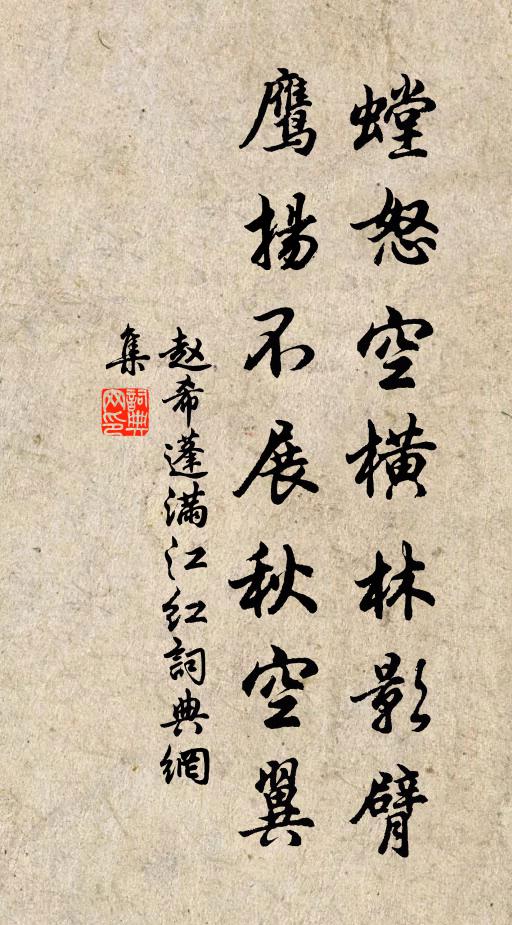 螳怒空横林影臂
鹰揚不展秋空翼
赵希蓬满江红詞典網
集
詞典
网印